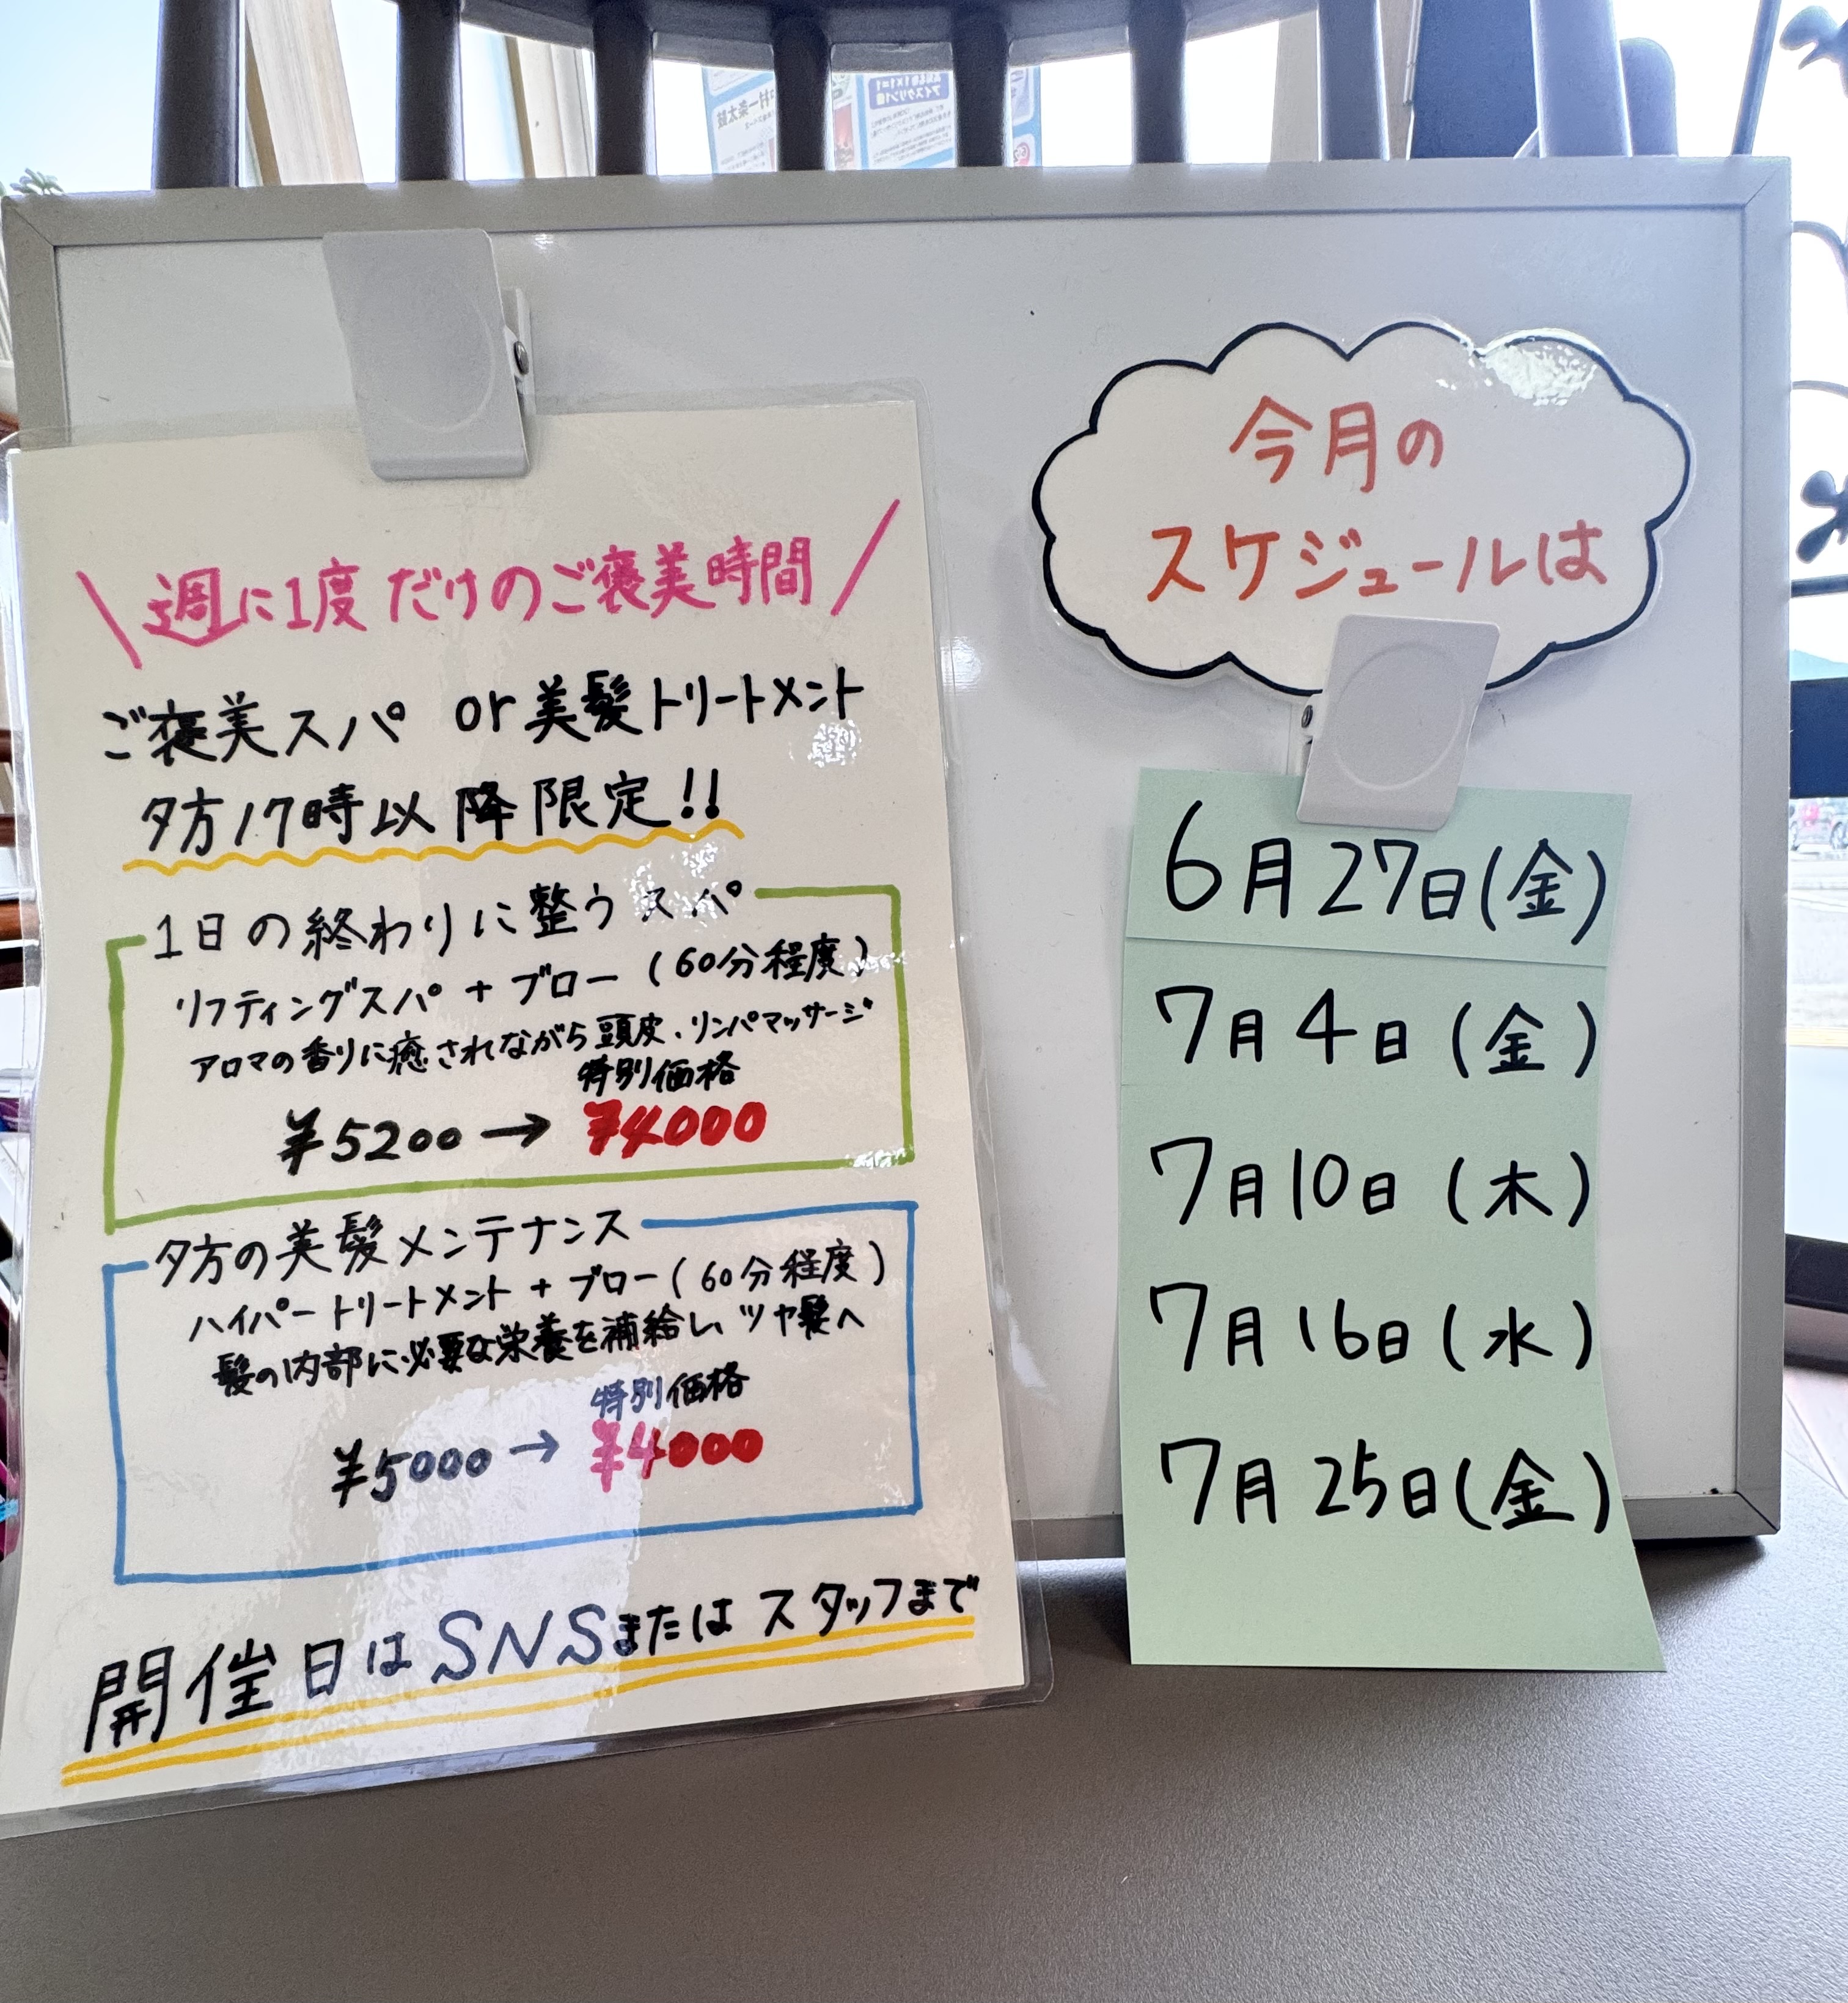 \ 週に1度だけのご褒美時間 /
ご褒美スパ or 美髪トリートメント
夕方17時以降限定!!
1日の終わりに整うスパ
リフティングスパ + ブロー (60分程度)
アロマの香りに癒されながら頭皮、リンパマッサージ
特別価格
¥5200 → ¥4000
夕方の美髪メンテナンス
ハイパートリートメント + ブロー (60分程度)
髪の内部に必要な栄養を補給し、ツヤ髪へ
特別価格
¥5000 → ¥4000
開催日はSNSまたはスタッフまで
今月の
スケジュールは
6月27日(金)
7月4日(金)
7月10日(木)
7月16日(水)
7月25日(金)